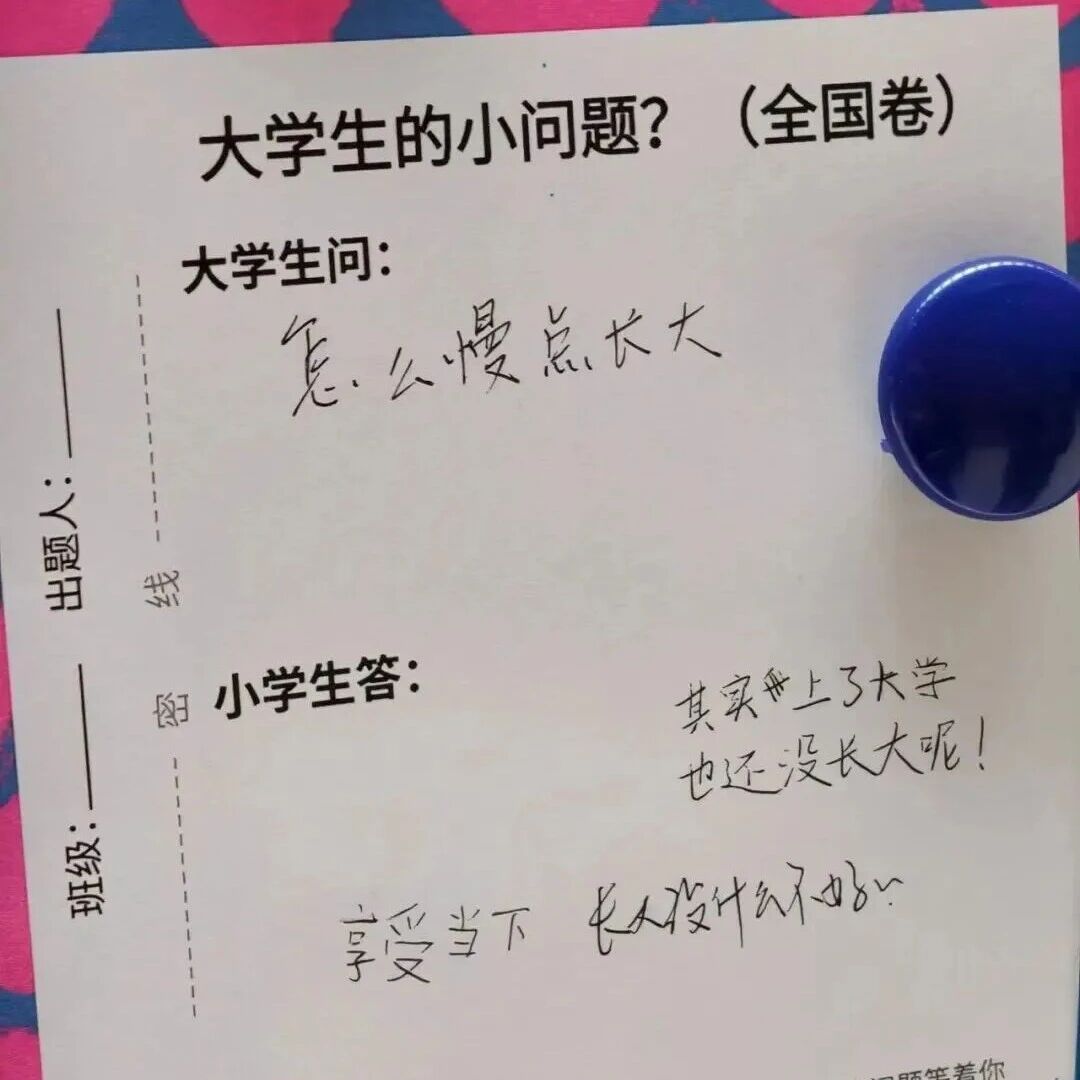 大学生的小问题？（全国卷）
大学生问：
怎么慢点长大
出题人：
线
密
班级：
小学生答：
其实上了大学
也还没长大呢！
享受当下
长大没什么不好
问题等着你